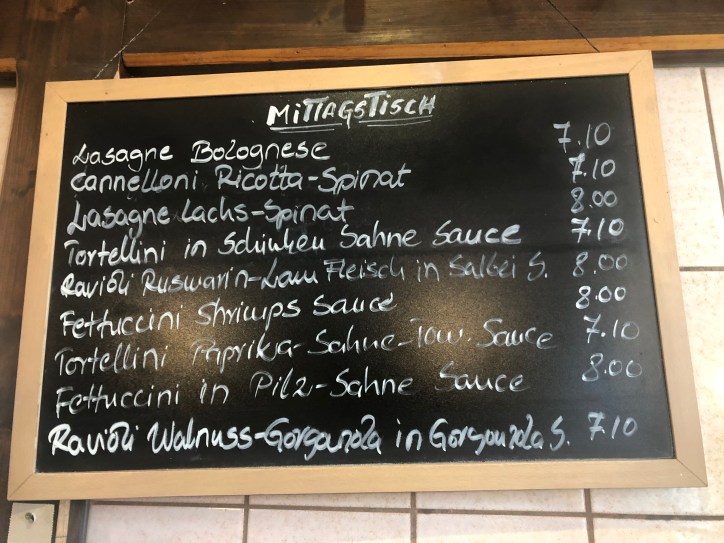 MITTAGSTISCH
Lasagne Bolognese 7.10
Cannelloni Ricotta-Spinat 7.10
Lasagne Lachs-Spinat 8.00
Tortellini in Schinken Sahne Sauce 7.10
Ravioli Rusmarin-Lam Fleisch in Salbei S. 8.00
Fettuccini Shrimps Sauce 8.00
Tortellini Paprika-Sahne-Tom. Sauce 7.10
Fettuccini in Pilz-Sahne Sauce 8.00
Ravioli Walnuss-Gorgonzola in Gorgonzola S. 7.10